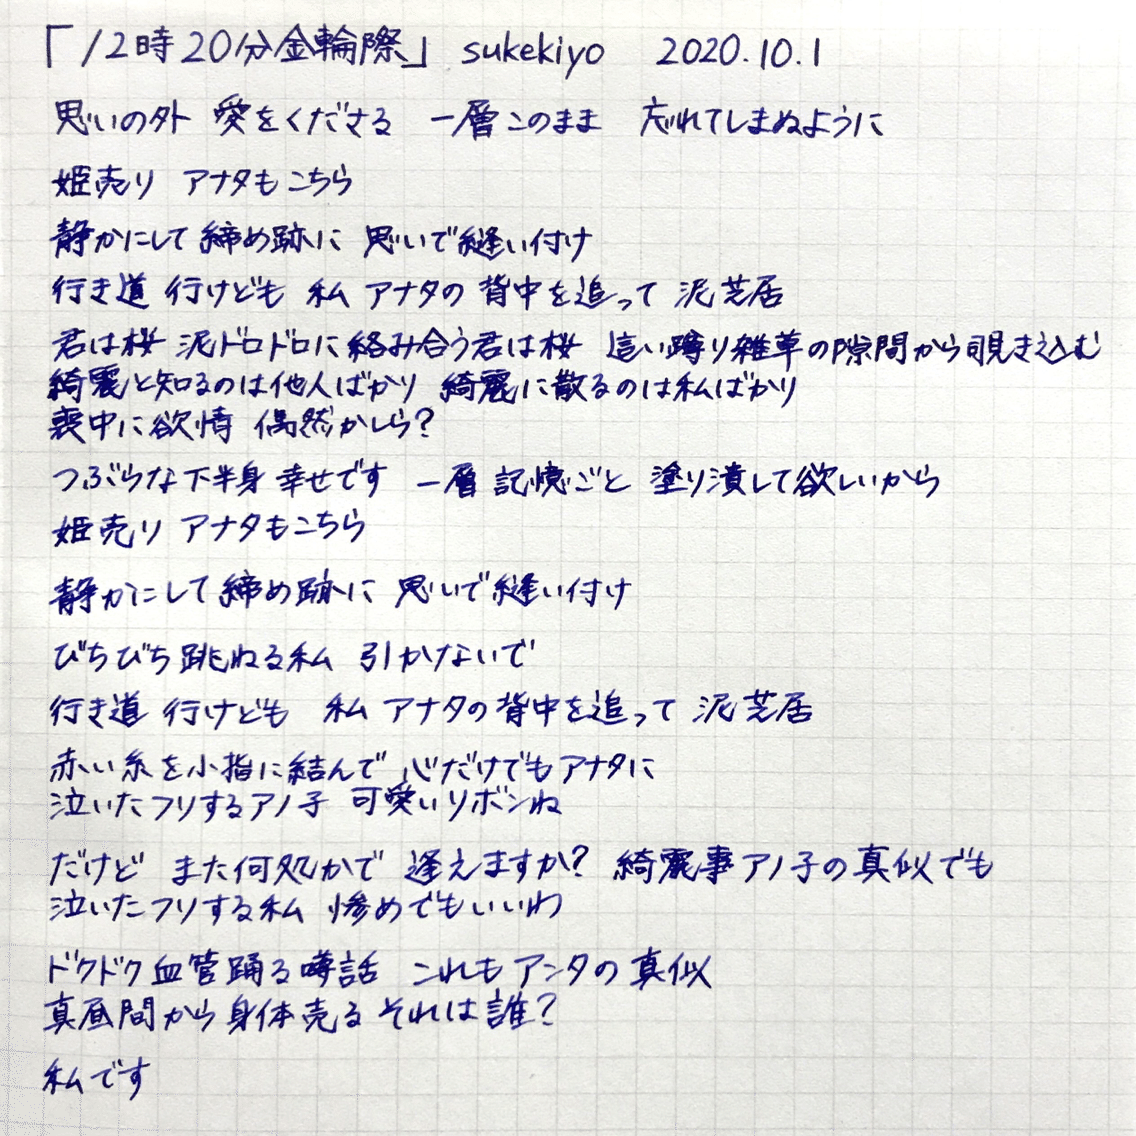 「12時20分金輪際」 sukekiyo 2020.10.1
思いの外 愛をくださる 一層このまま 忘れてしまぬように
姫売り アナタもこちら
静かにして 締め跡に 思いで縫い付け
行き道 行けども 私 アナタの 背中を追って 泥芝居
君は桜 泥ドロドロに絡み合う君は桜 這い蹲り雑草の隙間から覗き込む
綺麗と知るのは他人ばかり 綺麗に散るのは私ばかり
喪中に欲情 偶然かしら?
つぶらな下半身 幸せです 一層 記憶ごと 塗り潰して欲しいから
姫売り アナタもこちら
静かにして 締め跡に 思いで縫い付け
びちびち跳ねる私 引かないで
行き道 行けども 私 アナタの背中を追って 泥芝居
赤い糸を小指に結んで 心だけでもアナタに
泣いたフリするアノ子 可愛いリボンね
だけど また何処かで 逢えますか? 綺麗事アノ子の真似でも
泣いたフリする私 惨めでもいいわ
ドクドク血管踊る噂話 これもアンタの真似
真昼間から身体売る それは誰?
私です